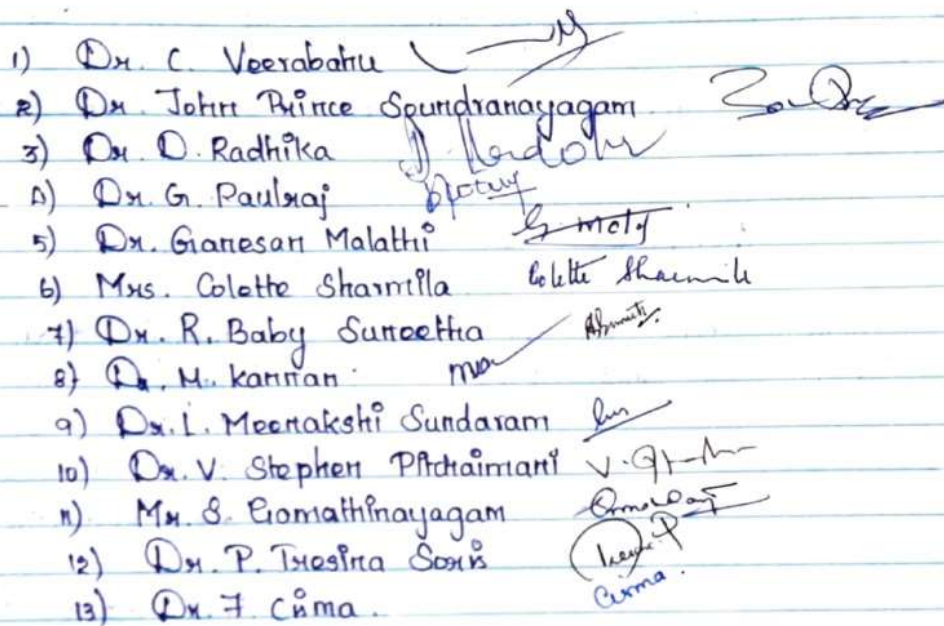 1) Dr. C. Veerabahu
2) Dr. John Prince Soundranayagam
3) Dr. D. Radhika
4) Dr. G. Paulraj
5) Dr. Ganesan Malathi
6) Mrs. Colette Sharmila Colette Sharmila
7) Dr. R. Baby Suneetha
8) Dr. M. Kannan
9) Dr. L. Meenakshi Sundaram
10) Dr. V. Stephen Pitchaimani
11) Mr. S. Gomathinayagam
12) Dr. P. Tresina Soris
13) Dr. F.